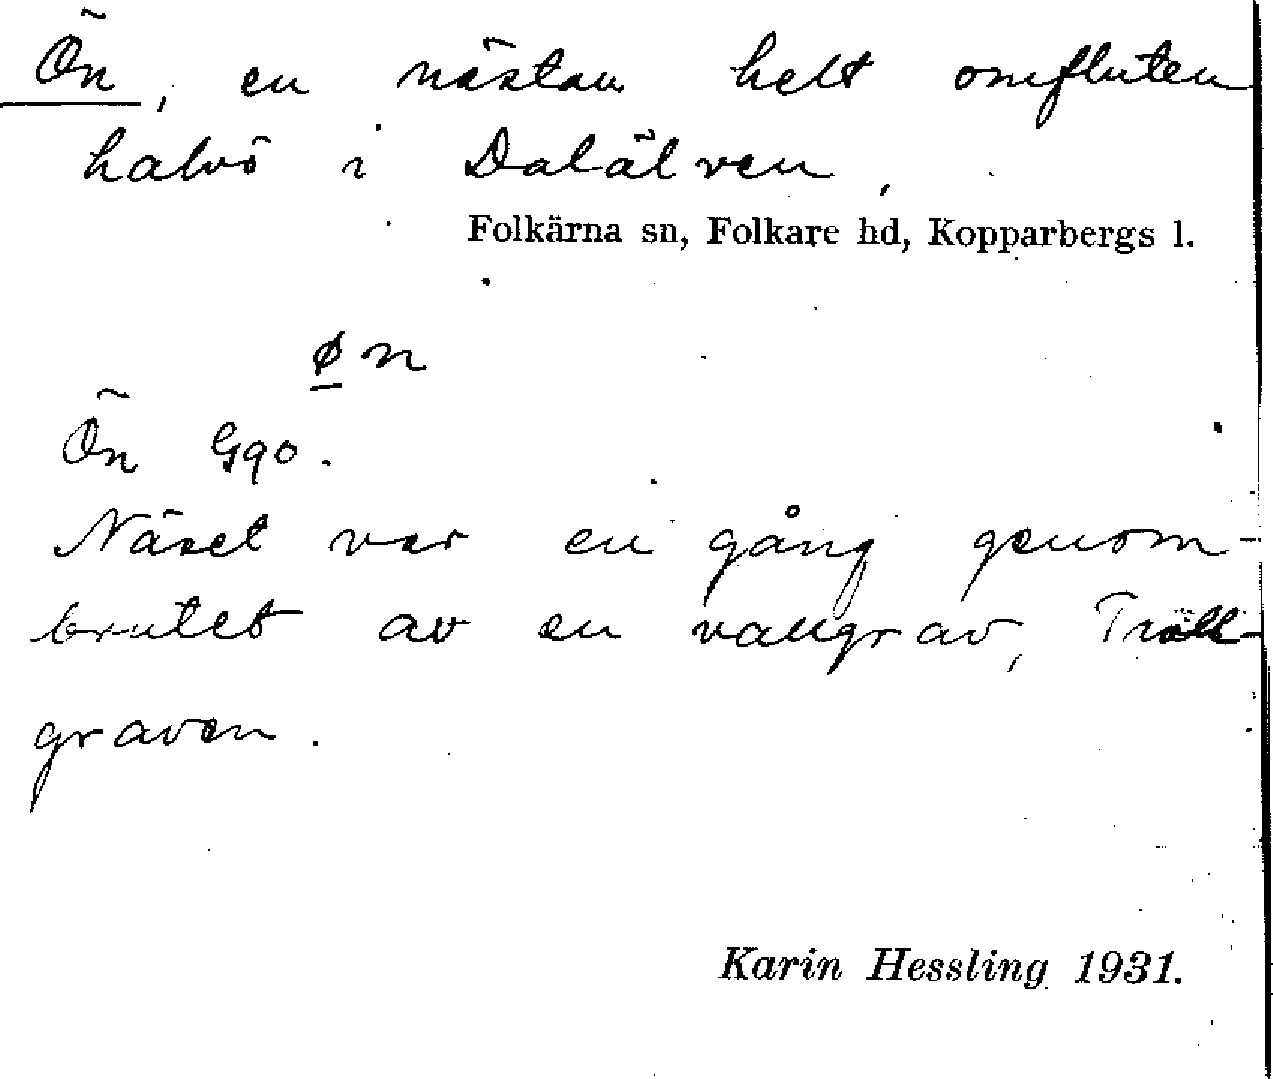 Ön, en nästan helt omfluten
halvö i Dalälven,
Folkärna sn, Folkare hd, Kopparbergs l.
øn
Ön Gqo.
Näset var en gång genom-
brutet av en vallgrav, Träll-
graven.
Karin Hessling 1931.